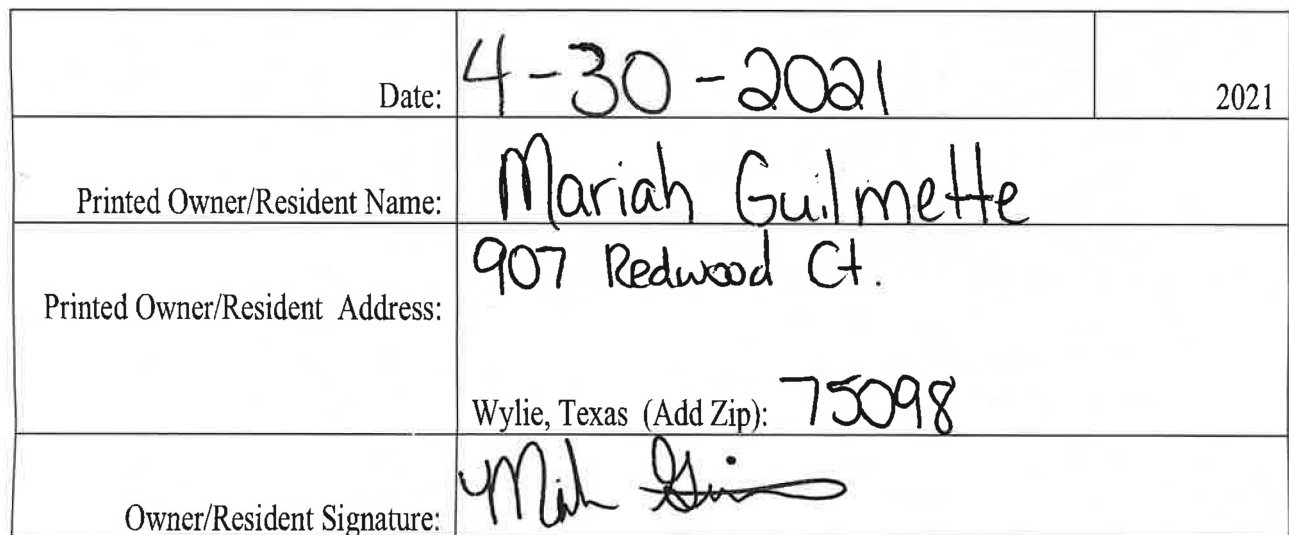 Date: 4-30-2021 2021
Printed Owner/Resident Name: Mariah Guilmette
907 Redwood Ct.
Printed Owner/Resident Address:
Wylie, Texas (Add Zip): 75098
Owner/Resident Signature: